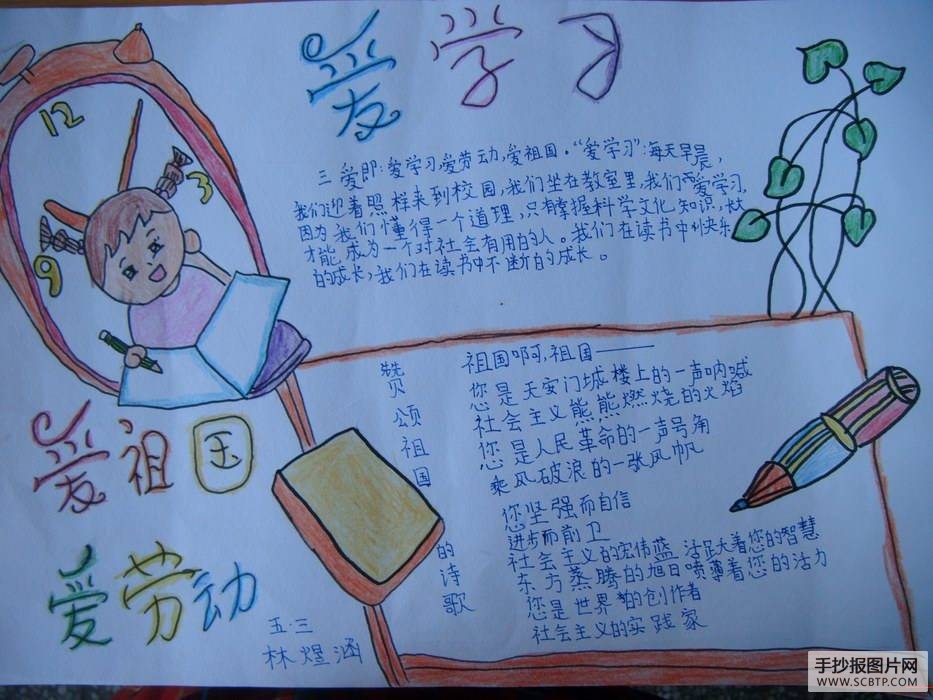 爱学习
12
3
9
三爱即:爱学习,爱劳动,爱祖国。“爱学习”:每天早晨,
我们迎着照样来到校园,我们坐在教室里,我们爱学习,
因为我们懂得一个道理,只有掌握科学文化知识,
才能成为一个对社会有用的人。我们在读书中快乐
的成长,我们在读书中不断的成长。
赞颂祖国的诗歌
祖国啊,祖国——
您是天安门城楼上的一声呐喊
社会主义熊熊燃烧的火焰
您是人民革命的一声号角
乘风破浪的一张风帆
您坚强而自信
进步而前卫
社会主义的宏伟蓝 活跃着您的智慧
东方蒸腾的旭日喷薄着您的活力
您是世界的创作者
社会主义的实践家
爱祖国
爱劳动
五.三
林煜涵
手抄报图片网
WWW.SCBTP.COM